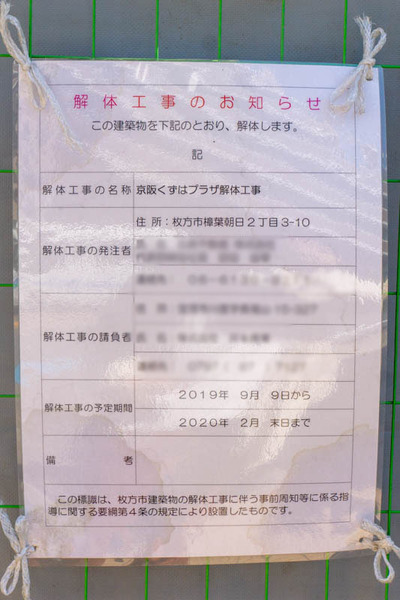 解体工事のお知らせ
この建築物を下記のとおり、解体します。
記
解体工事の名称 京阪くずはプラザ解体工事
解体工事の発注者 住 所：枚方市樟葉朝日２丁目３-１０
解体工事の請負者
解体工事の予定期間 ２０１９年　９月　９日から
２０２０年　２月　末日まで
備　者
この標識は、枚方市建築物の解体工事に伴う事前周知等に係る指
導に関する要綱第４条の規定により設置したものです。